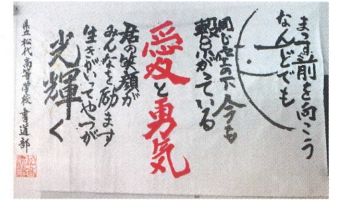 まっすぐ前を向こう
なんどでも
同じ空の下 今も
繋がっている
愛と勇気
君の笑顔が
みんなを励ます
生きがいってやつが
光輝く
県立松代高等学校 書道部